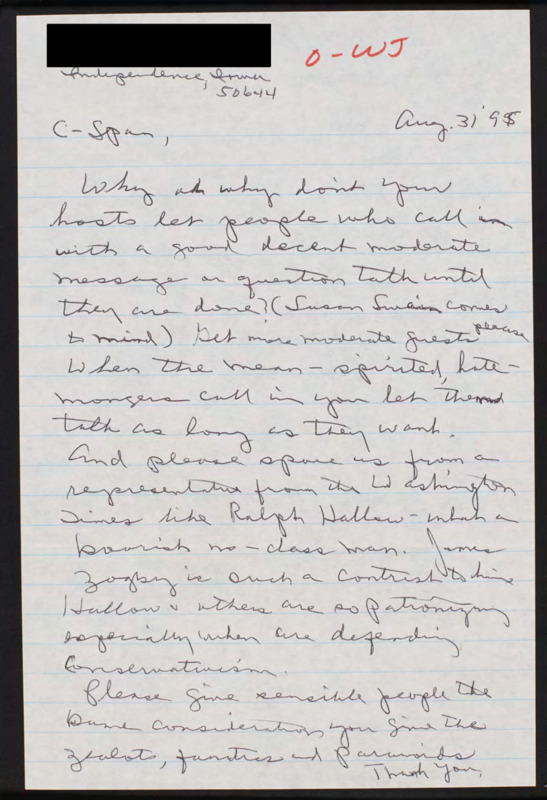 O-WJ
Independence, Iowa
50644
Aug. 31 '95
C-Span,
Why oh why don't your
hosts let people who call in
with a good decent moderate
message or question talk until
they are done? (Susan Swain comes
to mind) Get more moderate guests please
When the mean-spirited, hate-
mongers call in you let them
talk as long as they want.
And please spare us from a
representative from the Washington
Times like Ralph Hallow - what a
boorish no-class man. James
Zogby is such a contrast to him
Hallow & others are so patronizing
especially when are defending
Conservativism.
Please give sensible people the
same consideration you give the
zealots, fanatics and paranoids
Thank You.